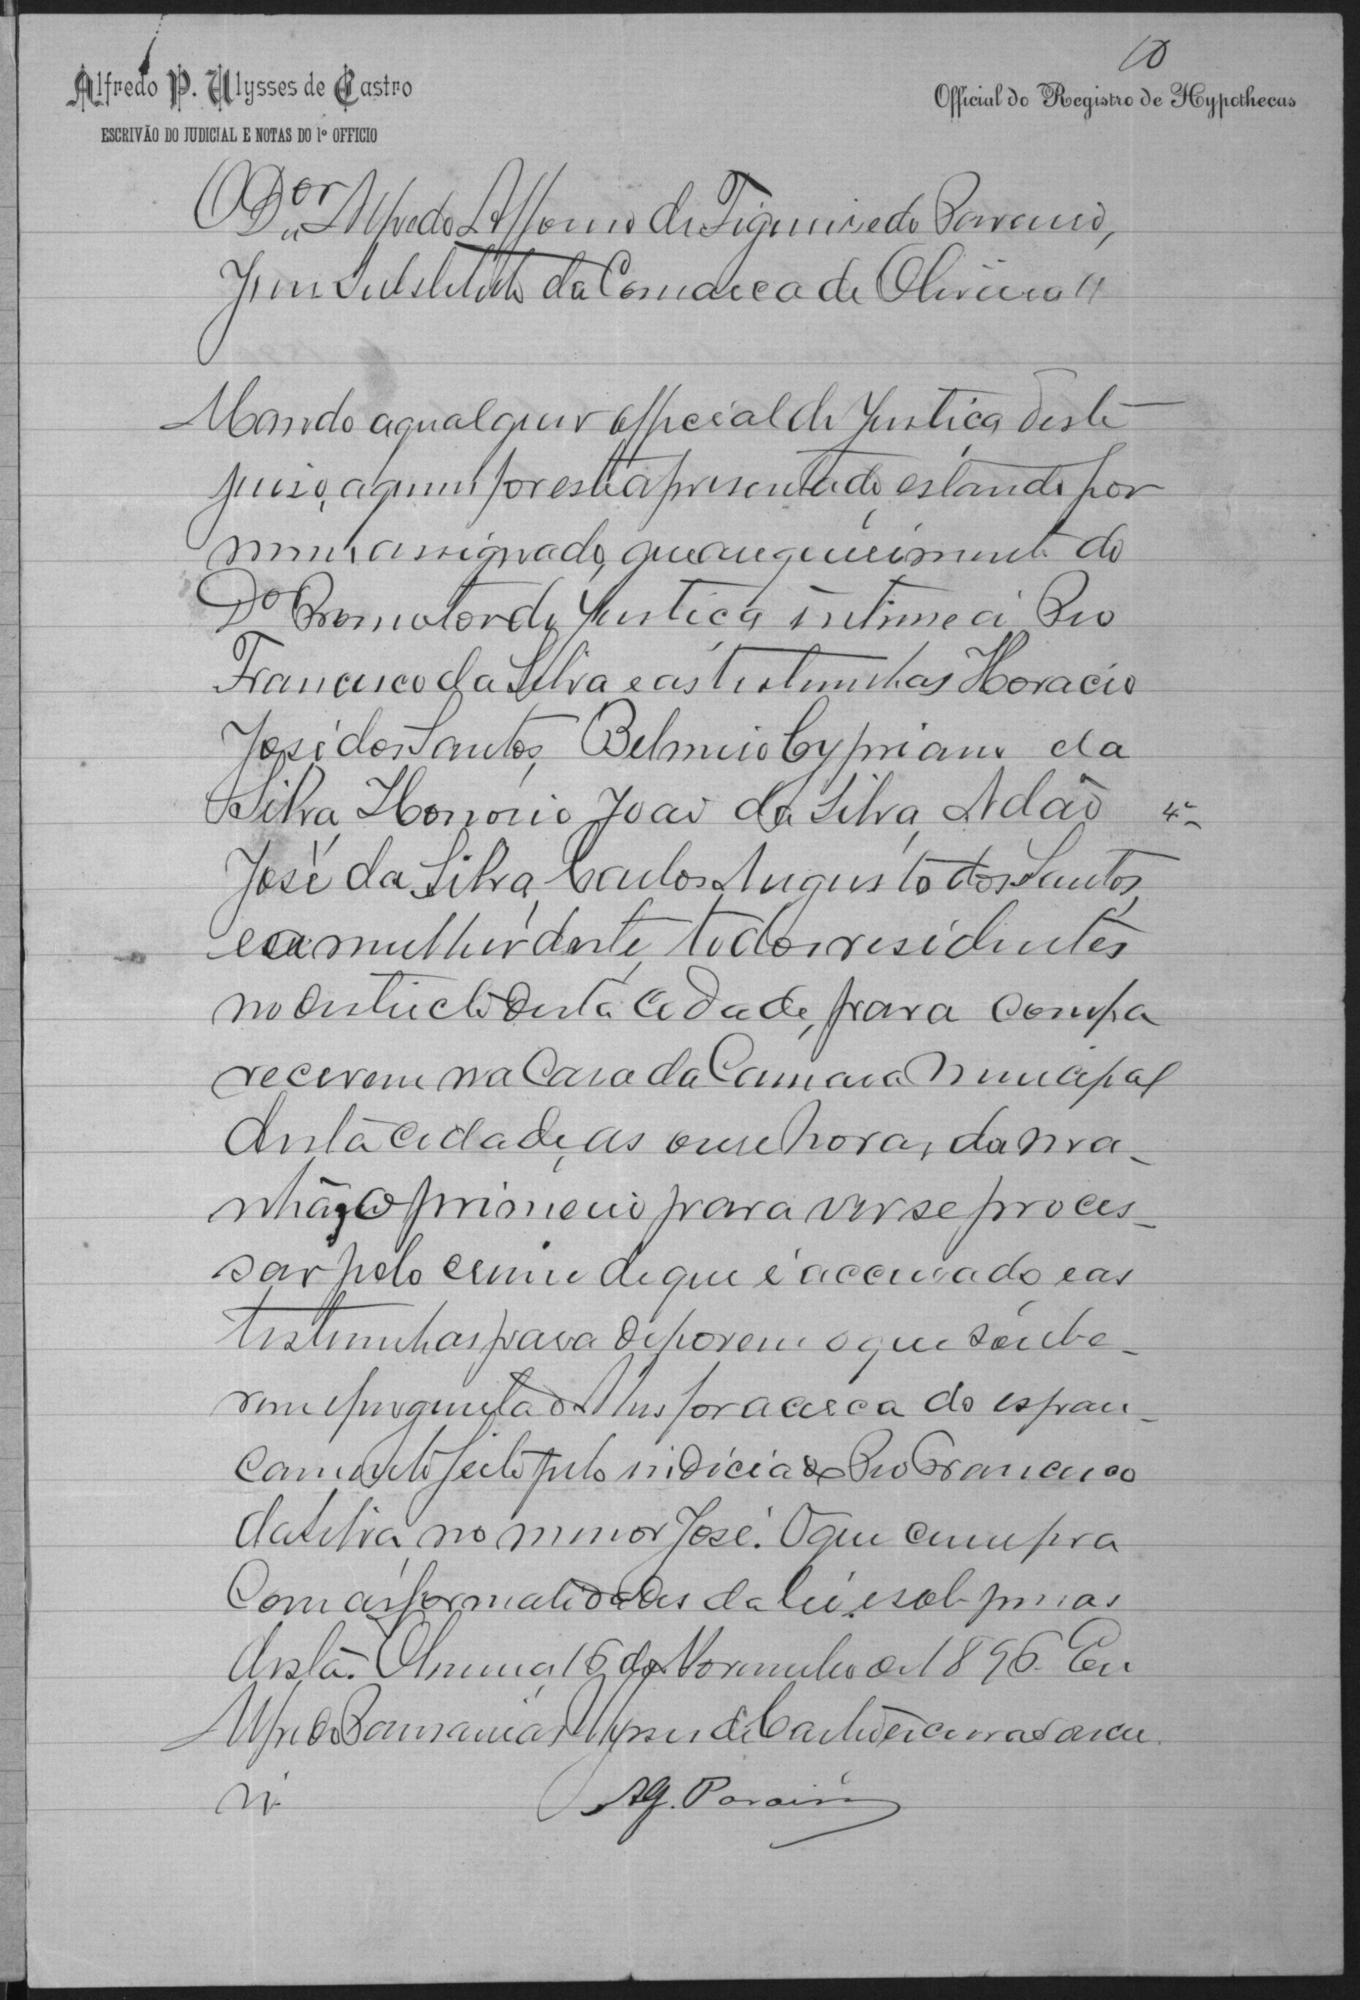 10
Alfredo P. Ulysses de Castro
Official do Registro de Hypothecas
ESCRIVÃO DO JUDICIAL E NOTAS DO 1º OFFICIO
O Dor Alfredo Affonso de Figueiredo Paraiso,
Juiz Substituto da Comarca de Oliveira
Mando a qualquer official de Justiça deste
juiso, a quem for este apresentado, estando por
mim assignado, que a requerimento do
Dº Promotor de Justiça intime a Pio
Francisco da Silva e as testemunhas Horacio
José dos Santos, Belmiro Cypriano da
Silva, Honorio João da Silva, Adão 4ª
José da Silva, Carlos Augusto dos Santos,
e a mulher deste, todos residentes
no districto desta cidade, para compa
recerem na Casa da Camara Municipal
desta cidade, as onse horas da ma-
nhã, o primeiro para ver se proces-
sar pelo crime de que é accusado, e as
testemunhas para deporem o que soube-
rem e perguntado lhes for acerca do espan-
camento feito pelo indiciado Pio Francisco
da Silva, no menor José. O que cumpra
com as formalidades da lei, e sob penas
desta. Oliveira, 16 de Novembro de 1896. Eu
Alfredo Ulysses de Castro escrivão o escre
vi.
AF. Paraiso